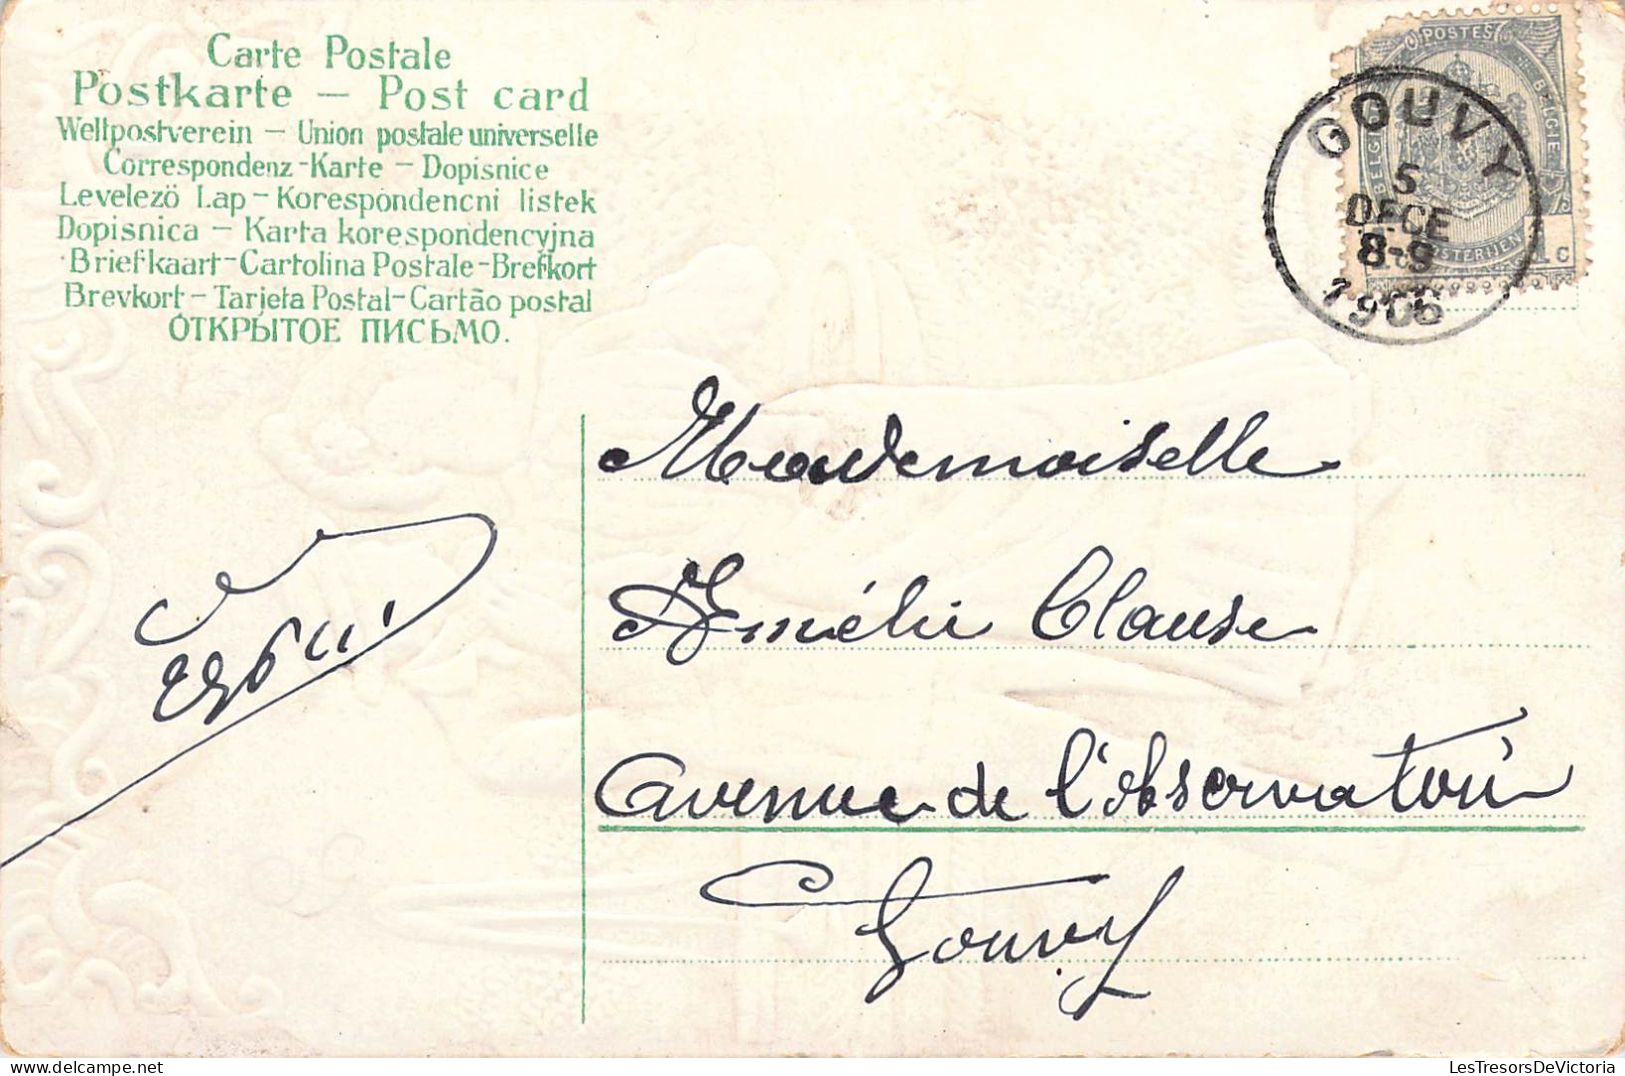 Carte Postale
Postkarte – Post card
Weltpostverein – Union postale universelle
Correspondenz-Karte – Dopisnice
Levelező Lap – Korespondencni listek
Dopisnica – Karta korespondencyjna
Briefkaart-Cartolina Postale-Brefkort
Brevkort – Tarjeta Postal-Cartão postal
ОТКРЫТОЕ ПИСЬМО.
POSTES
BELGIE
1 C
GOUVY
5
DECE
8-9
1906
Mademoiselle
Amélie Clause
Avenue de l'observatoire
Gouvy
LesTresorsDeVictoria